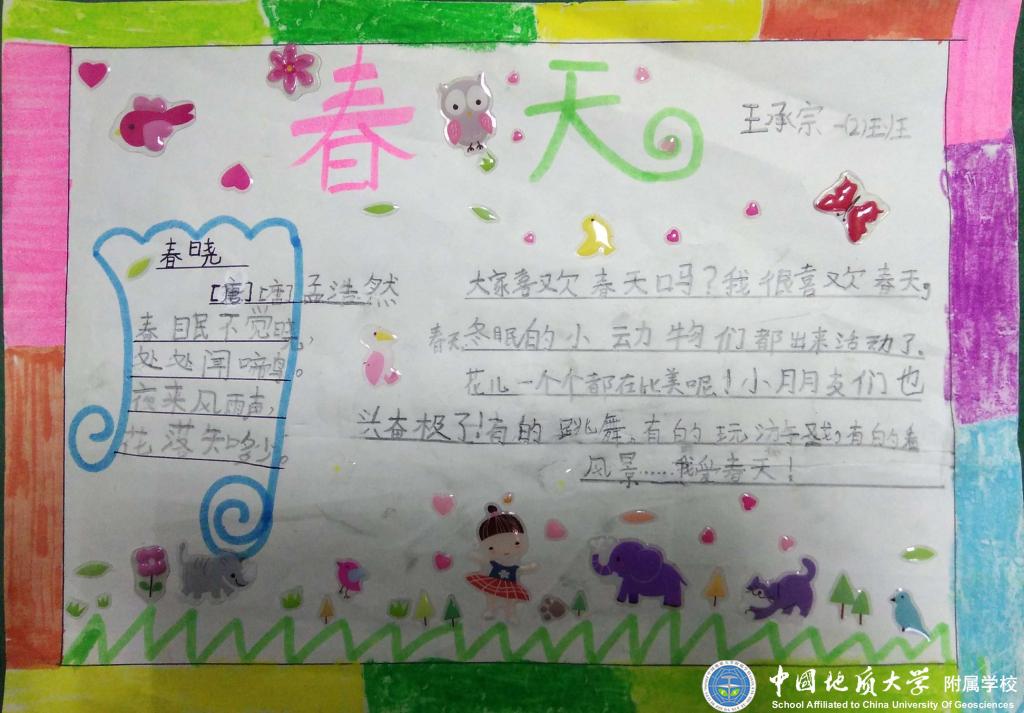 春天
王承宗 一(2)班
春晓
[唐] 孟浩然
春眠不觉晓,
处处闻啼鸟。
夜来风雨声,
花落知多少。
大家喜欢春天吗?我很喜欢春天,
春天,冬眠的小动物们都出来活动了.
花儿一个个都在比美呢!小朋友们也
兴奋极了!有的跳舞,有的玩游戏,有的看
风景……我爱春天!
中国地质大学 附属学校
School Affiliated to China University Of Geosciences